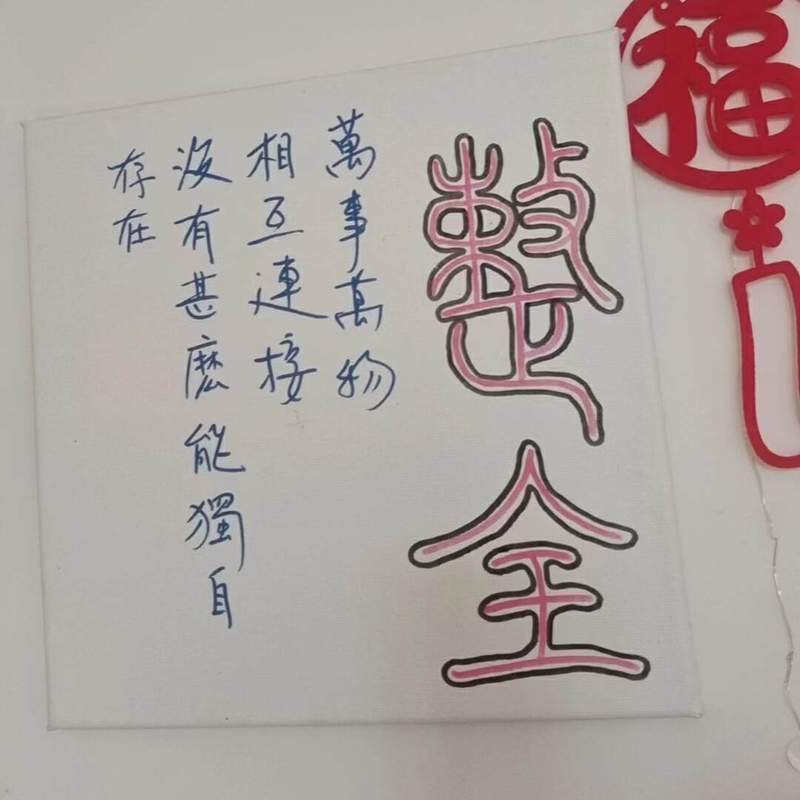 整全
萬事萬物
相互連接
沒有甚麼能獨自
存在
福